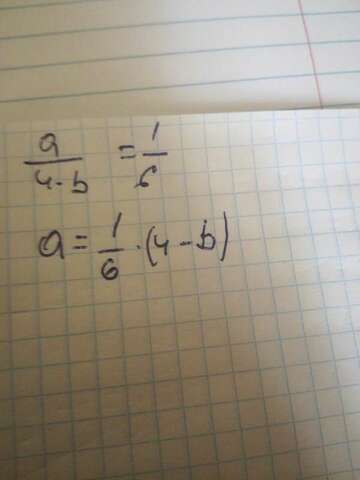 a/(4-b) = 1/6
a = 1/6 · (4-b)